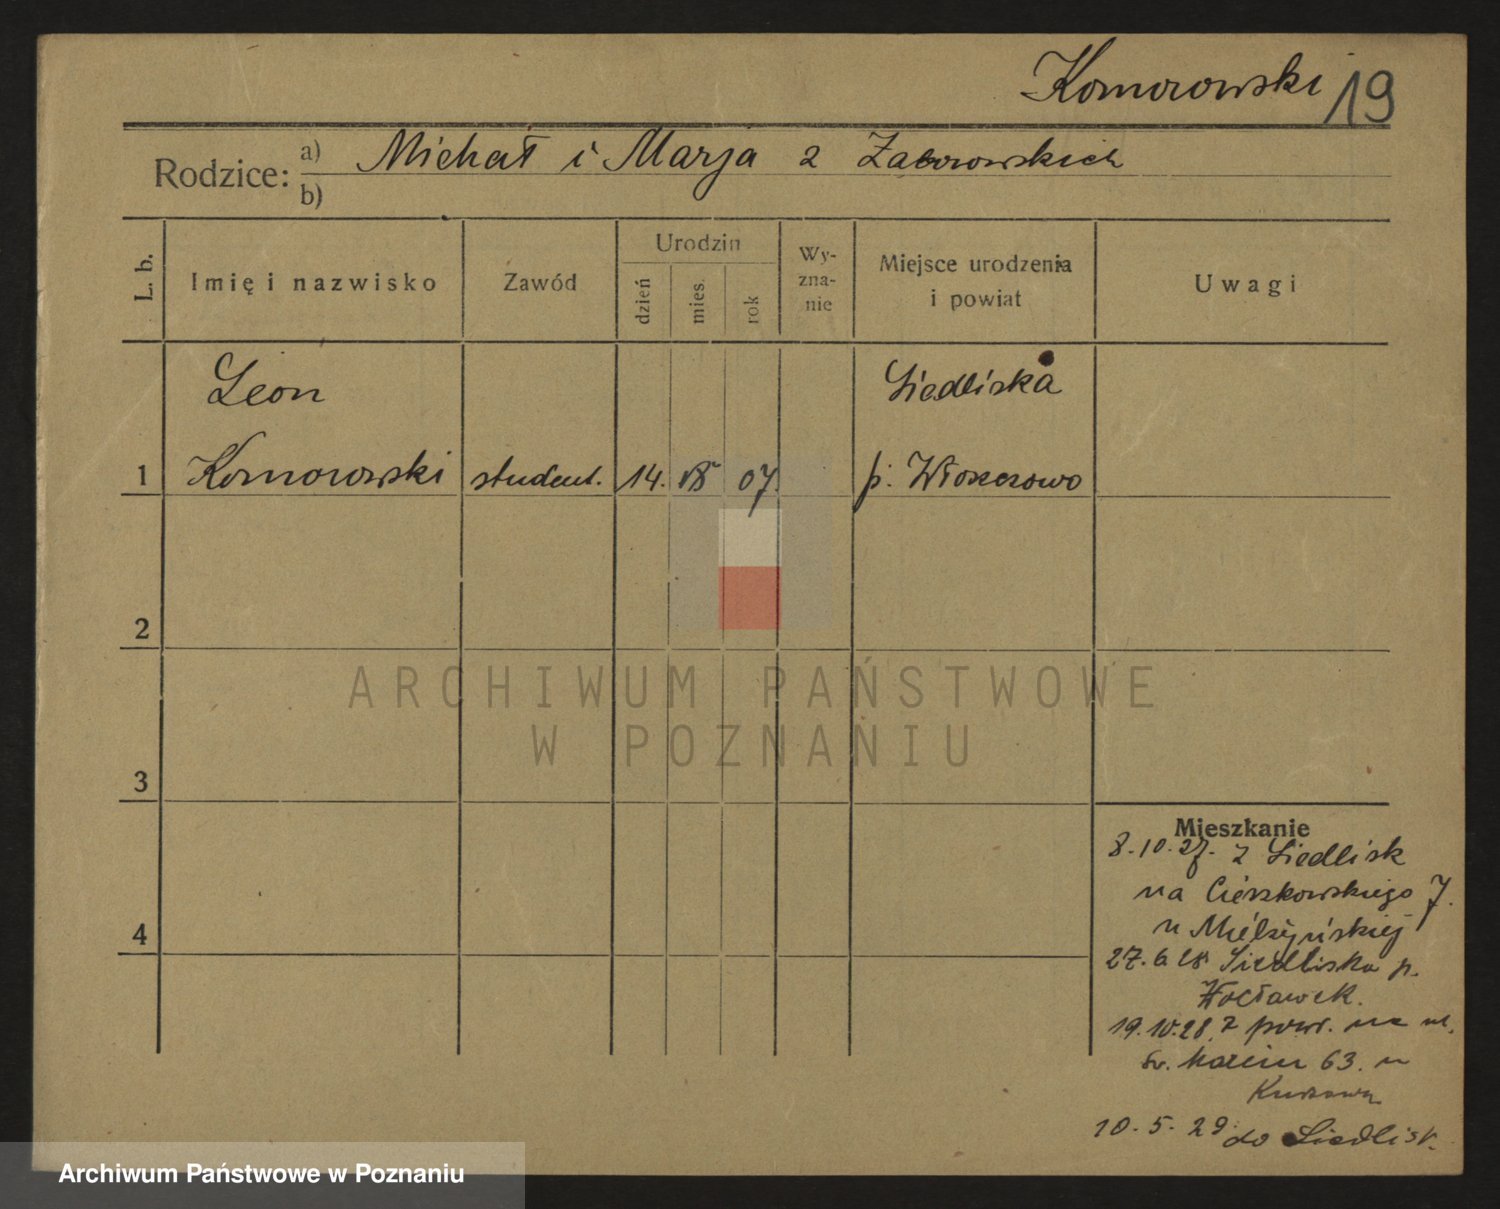 Komorowski 19
Rodzice: a) Michał i Marja z Zaborowskich
b)
L. b. Imię i nazwisko Zawód Urodzin dzień mies. rok Wy-zna-nie Miejsce urodzenia i powiat Uwagi
Leon Siedliska
1 Komorowski student. 14. 07 p. Włoszczowo
2
ARCHIWUM PAŃSTWOWE
W POZNANIU
3
Mieszkanie
8.10.27. z Siedlisk
na Cieszkowskiego 7.
u Mielżyńskiej
4
27.6 28 Siedliska p.
19.10.28 z powr. na ul.
św. Marcin 63. u
10.5.29 do Siedlisk.
Archiwum Państwowe w Poznaniu